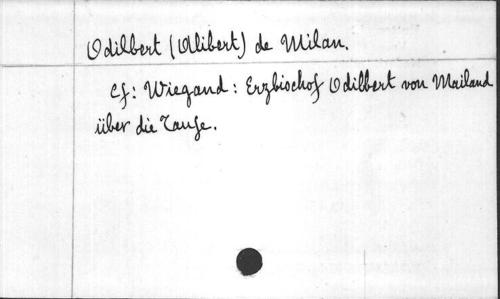 Odilbert (Olibert) de Milan.
Cf: Wiegand: Erzbischof Odilbert von Mailand
über die Taufe.